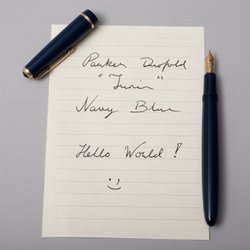 Parker Duofold
"Junior"
Navy Blue
Hello World!
:-)